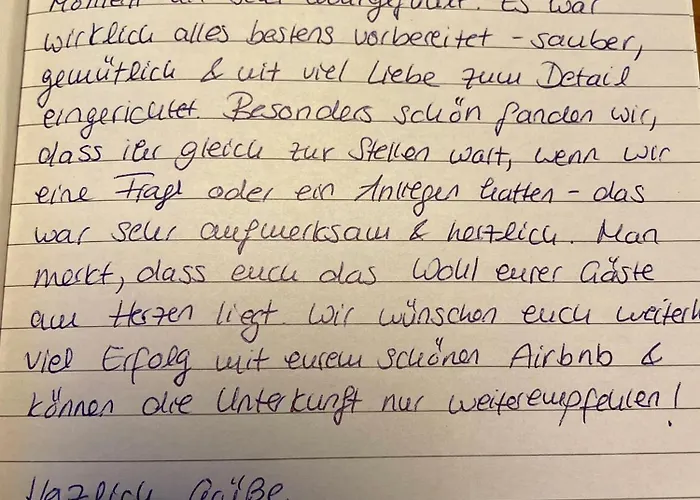 Moment an sehr wohlgefühlt. Es war
wirklich alles bestens vorbereitet - sauber,
gemütlich & mit viel Liebe zum Detail
eingerichtet. Besonders schön fanden wir,
dass ihr gleich zur Stellen wart, wenn wir
eine Frage oder ein Anliegen hatten - das
war sehr aufmerksam & herzlich. Man
merkt, dass euch das Wohl eurer Gäste
am Herzen liegt. Wir wünschen euch weiterh
viel Erfolg mit eurem schönen Airbnb &
können die Unterkunft nur weiterempfehlen!
Grüße